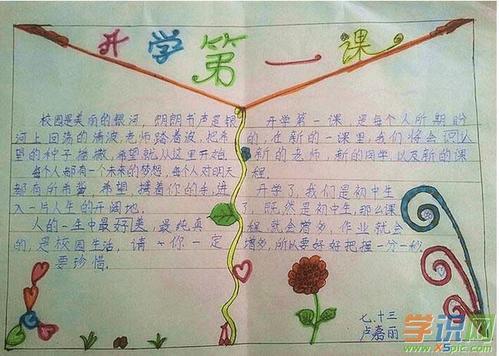 开学第一课
校园是美丽的银河，朗朗书声是银
河上回荡的清波，老师踏着波，把希
望的种子播撒，希望就从这里开始。
每个人都有一个未来的梦想，每个人对明天
都有所希蓄，希望，携着你的手，进
入一片人生的开阔地。
人的一生中最好美，最纯真
的，是校园生活，请你一定
要珍惜。
开学第一课，是每个人所期盼
的，在新的一课里，我们将会回认
新的老师，新的同学以及新的课
程。
开学了，我们是初中生
了，既然是初中生，那么课
程就会增多，作业就会
增多，所以要好好把握一分一秒
七.十三
卢嘉丽
学识网
www.XSpic.com